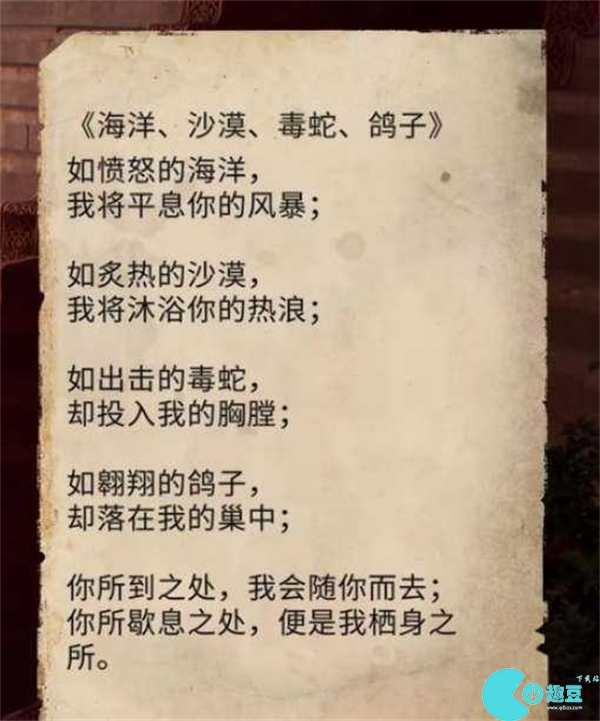 《海洋、沙漠、毒蛇、鸽子》
如愤怒的海洋，
我将平息你的风暴；
如炙热的沙漠，
我将沐浴你的热浪；
如出击的毒蛇，
却投入我的胸膛；
如翱翔的鸽子，
却落在我的巢中；
你所到之处，我会随你而去；
你所歇息之处，便是我栖身之
所。
下载站
趣豆
www.qdbzx.com